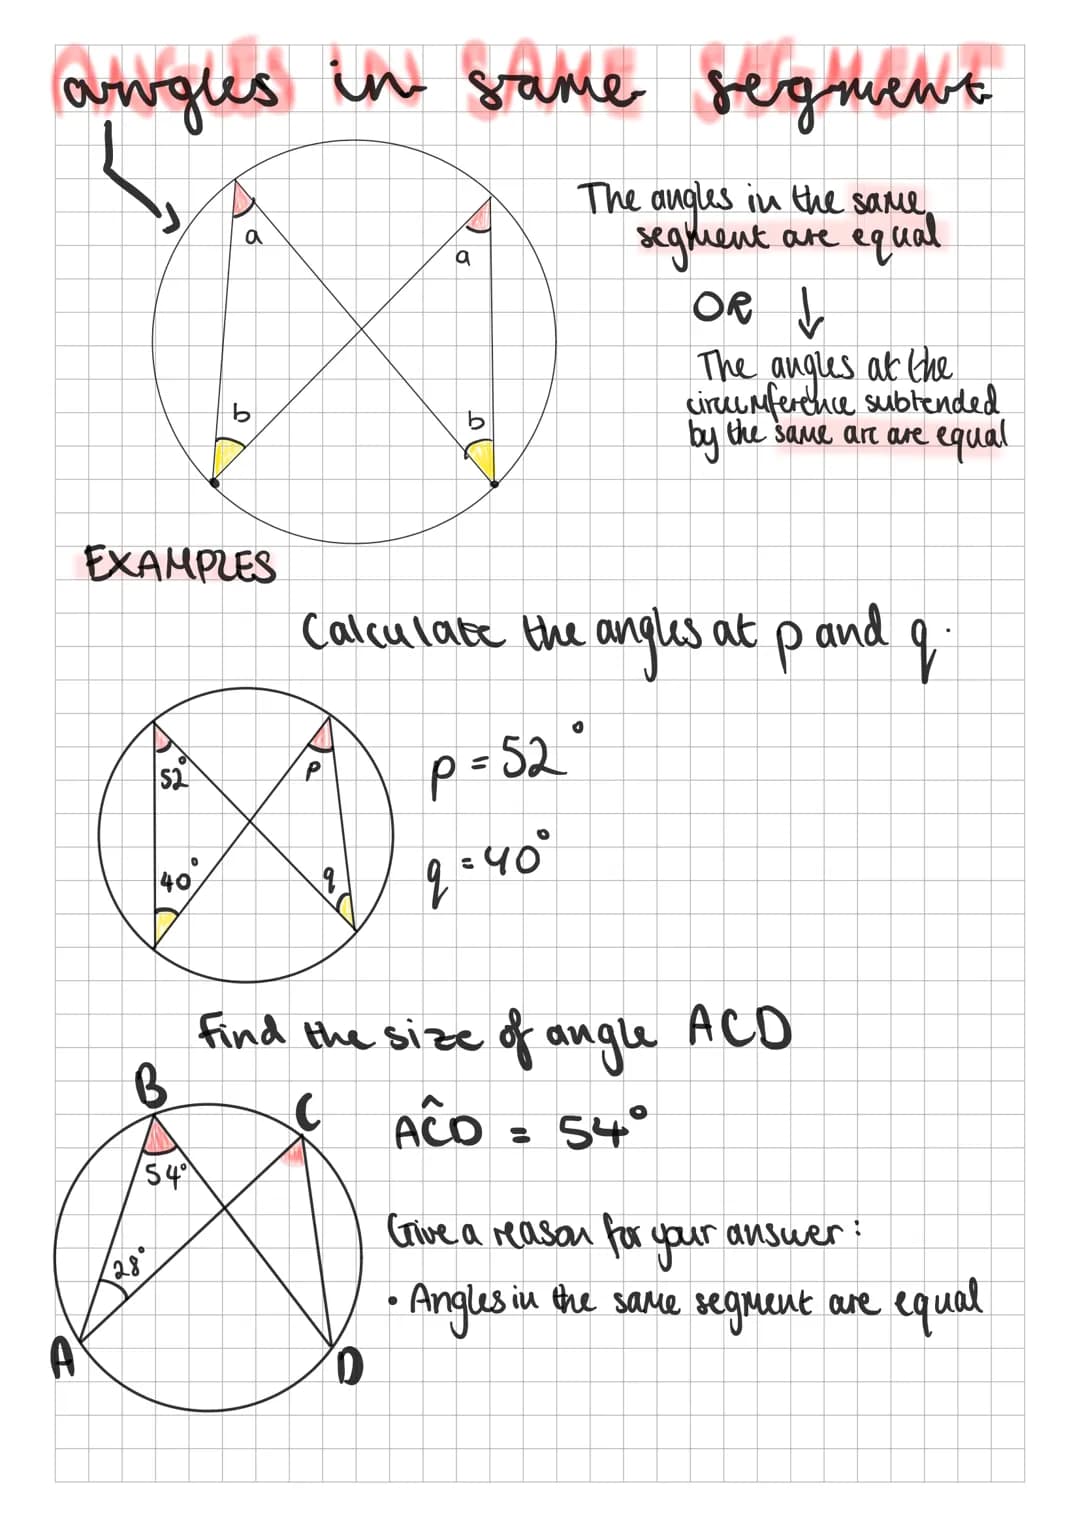 angles in same segment
a
a
b
b
The angles in the same
segment are equal
OR ↓
The angles at the
circumference subtended
by the same arc are equal
EXAMPLES
Calculate the angles at p and q.
52°
p
40°
q
p = 52°
q = 40°
Find the size of angle ACD
B
C
54°
28°
A
D
AĈD = 54°
Give a reason for your answer:
• Angles in the same segment are equal